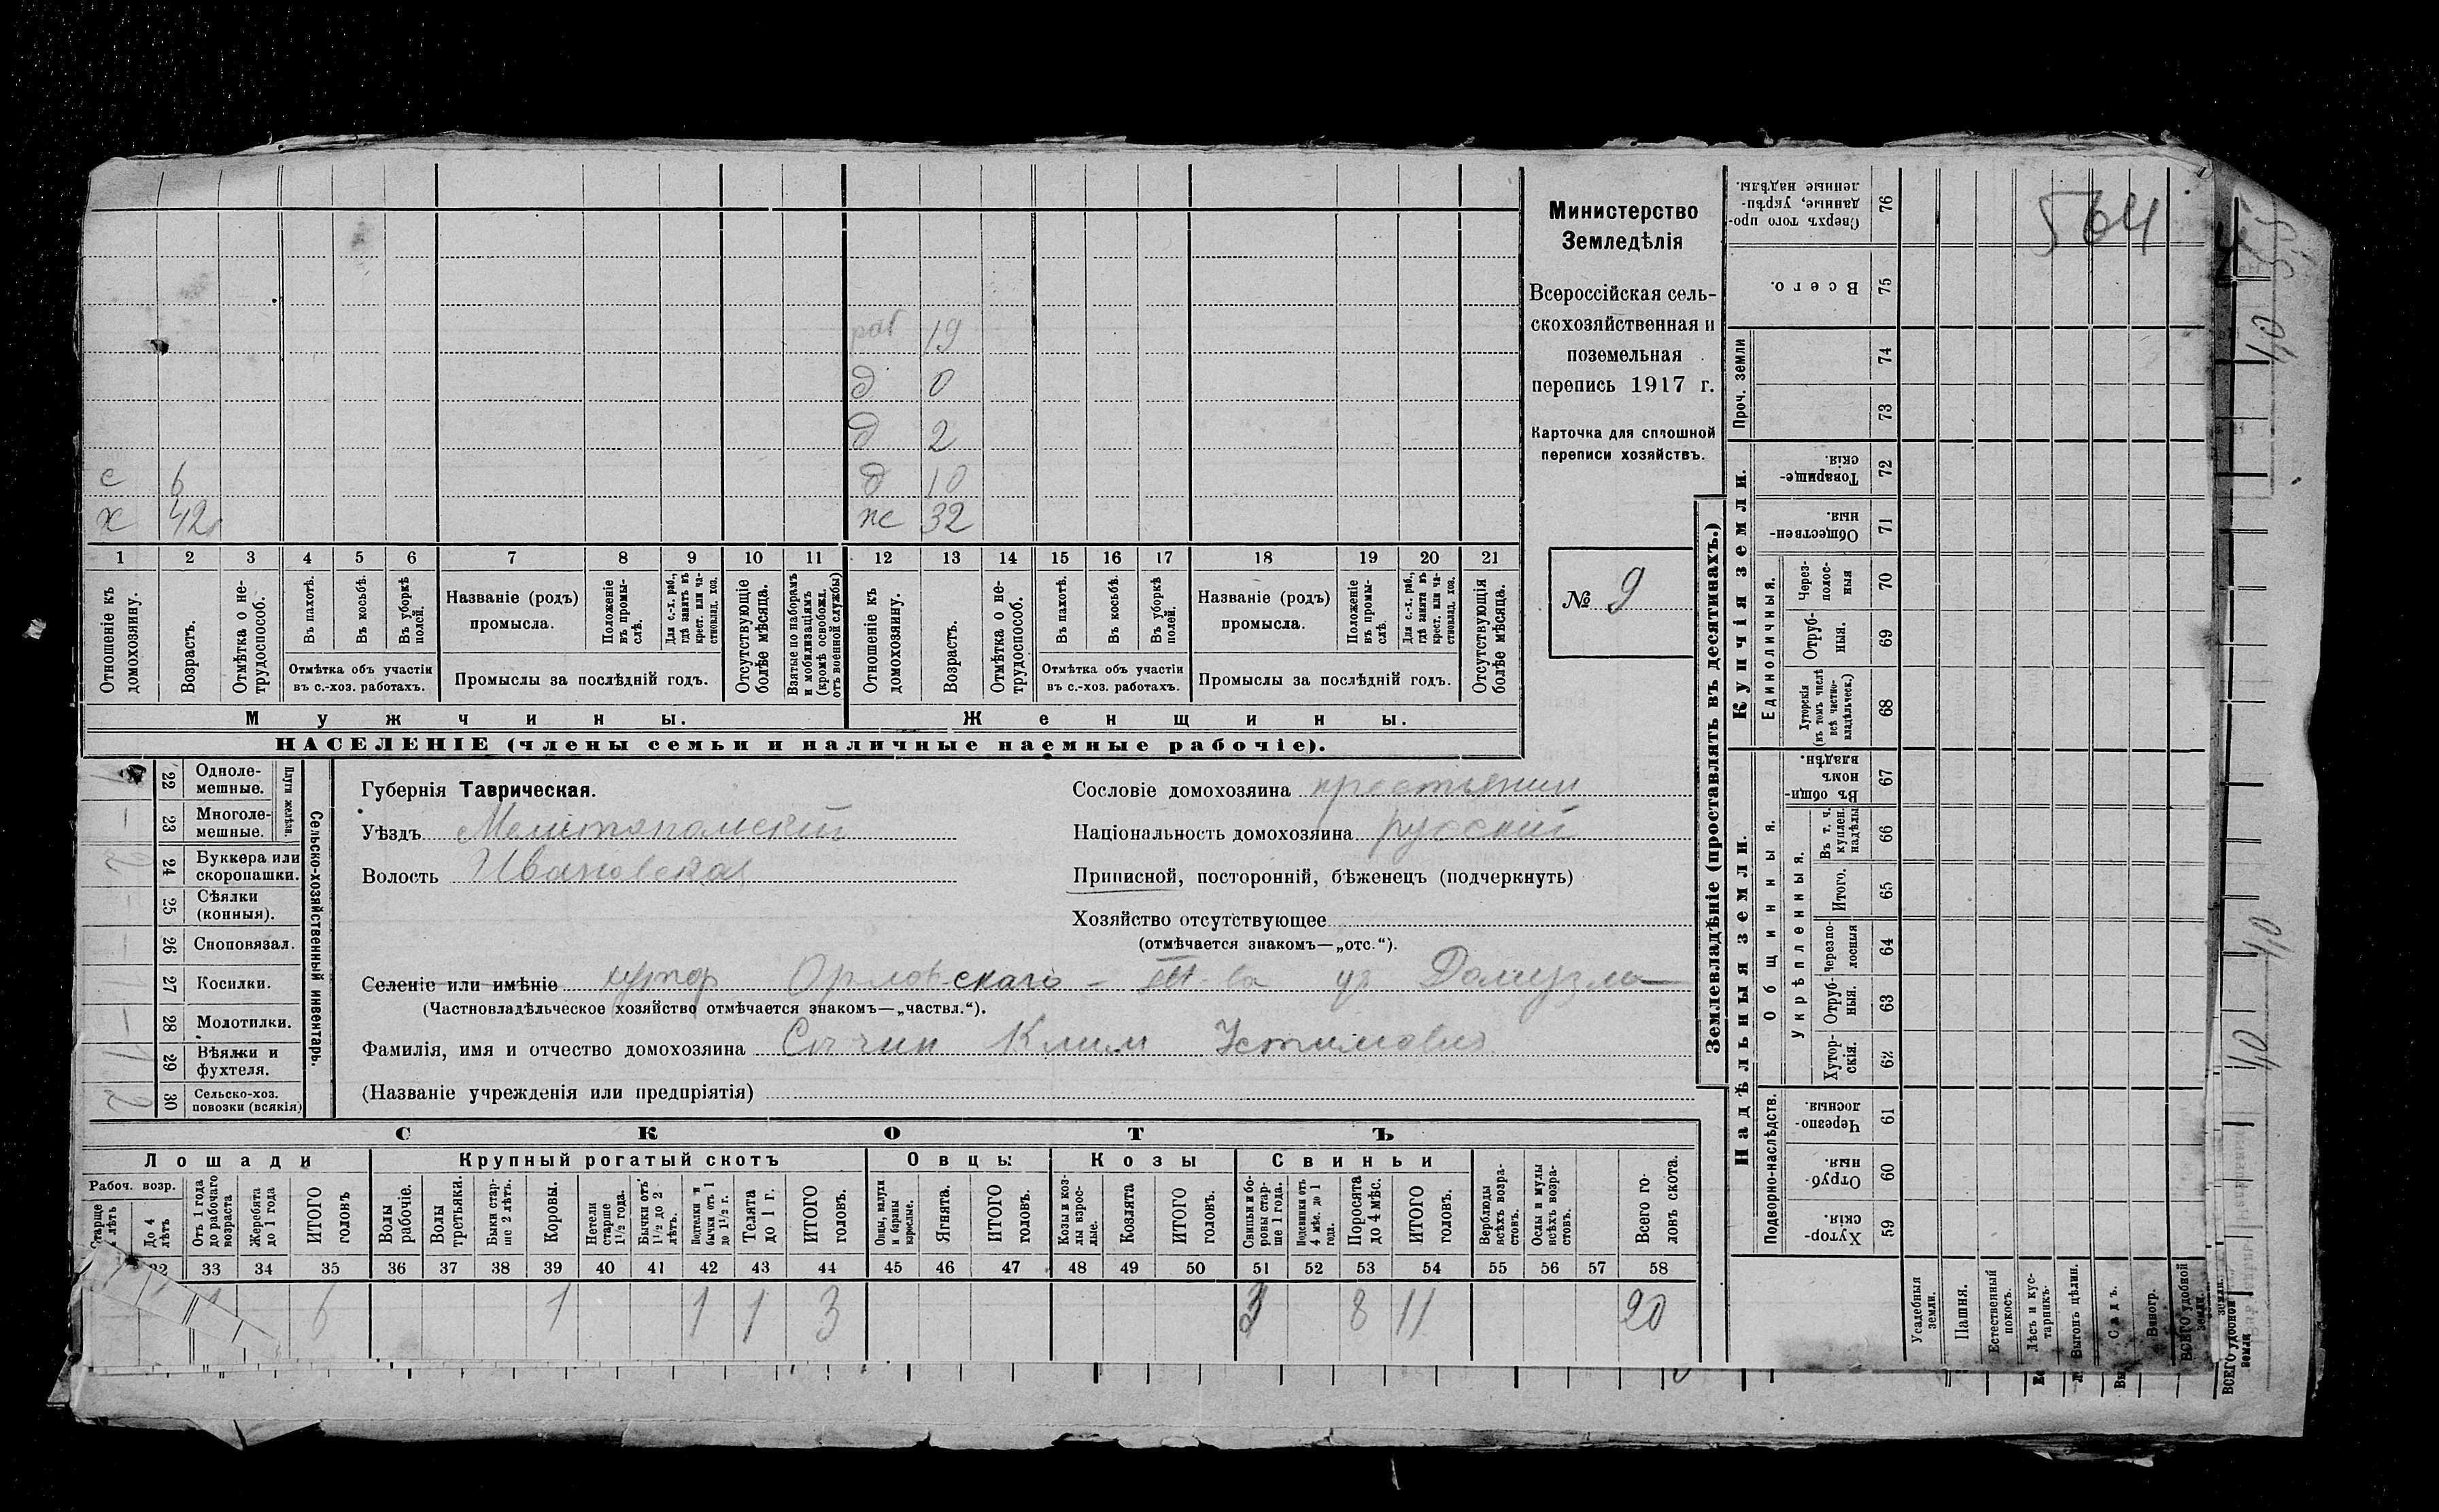 Министерство
Земледѣлія
Всероссійская сель-
скохозяйственная и
поземельная
перепись 1917 г.
Карточка для сплошной
переписи хозяйствъ.
№ 9
564
раб 19
д 0
д 2
с 6 д 10
х 42 ж 32
1 2 3 4 5 6 7 8 9 10 11 12 13 14 15 16 17 18 19 20 21
Отношеніе къ домохозяину.
Возрастъ.
Отмѣтка о не-трудоспособ.
Въ пахотѣ.
Въ косьбѣ.
Въ уборкѣ полей.
Отмѣтка объ участіи
въ с.-хоз. работахъ.
Названіе (родъ)
промысла.
Положеніе въ промы-слѣ.
Для с.-х. раб., гдѣ занятъ въ крест. или ча-стновлад. хоз.
Промыслы за послѣдній годъ.
Отсутствующіе болѣе мѣсяца.
Взятые по наборамъ и мобилизаціямъ (кромѣ освобожд. отъ военной службы)
Отношеніе къ домохозяину.
Возрастъ.
Отмѣтка о не-трудоспособ.
Въ пахотѣ.
Въ косьбѣ.
Въ уборкѣ полей.
Отмѣтка объ участіи
въ с.-хоз. работахъ.
Названіе (родъ)
промысла.
Положеніе въ промы-слѣ.
Для с.-х. раб., гдѣ занята въ крест. или ча-стновлад. хоз.
Промыслы за послѣдній годъ.
Отсутствующія болѣе мѣсяца.
Мужчины. Женщины.
НАСЕЛЕНІЕ (члены семьи и наличные наемные рабочіе).
Сельско-хозяйственный инвентарь.
Плуги желѣзн.
22 Одноле-мешные.
23 Многоле-мешные.
24 Буккера или скоропашки.
25 Сѣялки (конныя).
26 Сноповязал.
27 Косилки.
28 Молотилки.
29 Вѣялки и фухтеля.
30 Сельско-хоз. повозки (всякія) 2
Губернія Таврическая.
Уѣздъ Мелитопольскій
Волость Ивановская
Сословіе домохозяина крестьянин
Національность домохозяина русскій
Приписной, посторонній, бѣженецъ (подчеркнуть)
Хозяйство отсутствующее
(отмѣчается знакомъ—„отс.“).
Селеніе или имѣніе хутор Орловскаго
(Частновладѣльческое хозяйство отмѣчается знакомъ—„частвл.“).
Фамилія, имя и отчество домохозяина Клим Устимович
(Названіе учрежденія или предпріятія)
СКОТЪ
Лошади Крупный рогатый скотъ Овцы Козы Свиньи
Рабоч. возр.
Старше лѣтъ
До 4 лѣтъ
Отъ 1 года до рабочаго возраста
Жеребята до 1 года
ИТОГО головъ
Волы рабочіе.
Волы третьяки.
Быки стар-ше 2 лѣтъ.
Коровы.
Нетели старше 1½ года.
Бычки отъ 1½ до 2 лѣтъ.
Подтелки и бычки отъ 1 до 1½ г.
Телята до 1 г.
ИТОГО головъ.
Овцы, валухи и бараны взрослые.
Ягнята.
ИТОГО головъ.
Козы и коз-лы взрос-лые.
Козлята
ИТОГО головъ.
Свиньи и бо-ровы стар-ше 1 года.
Подсвинки отъ 4 мѣс. до 1 года.
Поросята до 4 мѣс.
ИТОГО головъ.
Верблюды всѣхъ возра-стовъ.
Ослы и мулы всѣхъ возра-стовъ.
Всего го-ловъ скота.
33 34 35 36 37 38 39 40 41 42 43 44 45 46 47 48 49 50 51 52 53 54 55 56 57 58
6 1 1 1 3 3 8 11 20
Землевладѣніе (проставлять въ десятинахъ.)
Купчія земли.
Надѣльныя земли.
Сверхъ того про-данные, укрѣп-ленные надѣлы. 76
Всего. 75
Проч. земли 74 73
Товарище-скія. 72
Обществен-ныя. 71
Единоличныя.
Через-полос-ныя 70
Отруб-ныя. 69
Хуторскія (въ томъ числѣ всѣ частно-владѣльческ.) 68
Общинныя.
Въ общи-номъ владѣн. 67
Укрѣпленныя.
Въ т. ч. куплен. надѣлы 66
Итого. 65
Черезпо-лосныя 64
Отруб-ныя. 63
Хутор-скія. 62
Подворно-наслѣдств.
Черезпо-лосныя. 61
Отруб-ныя. 60
Хутор-скія. 59
Усадебныя земли.
Пашня.
Естественный покосъ.
Лѣсъ и кус-тарникъ
Выгонъ цѣлин.
Садъ.
Виногр.
ВСЕГО удобной земли.
ВСЕГО удобной земли
40
40
40